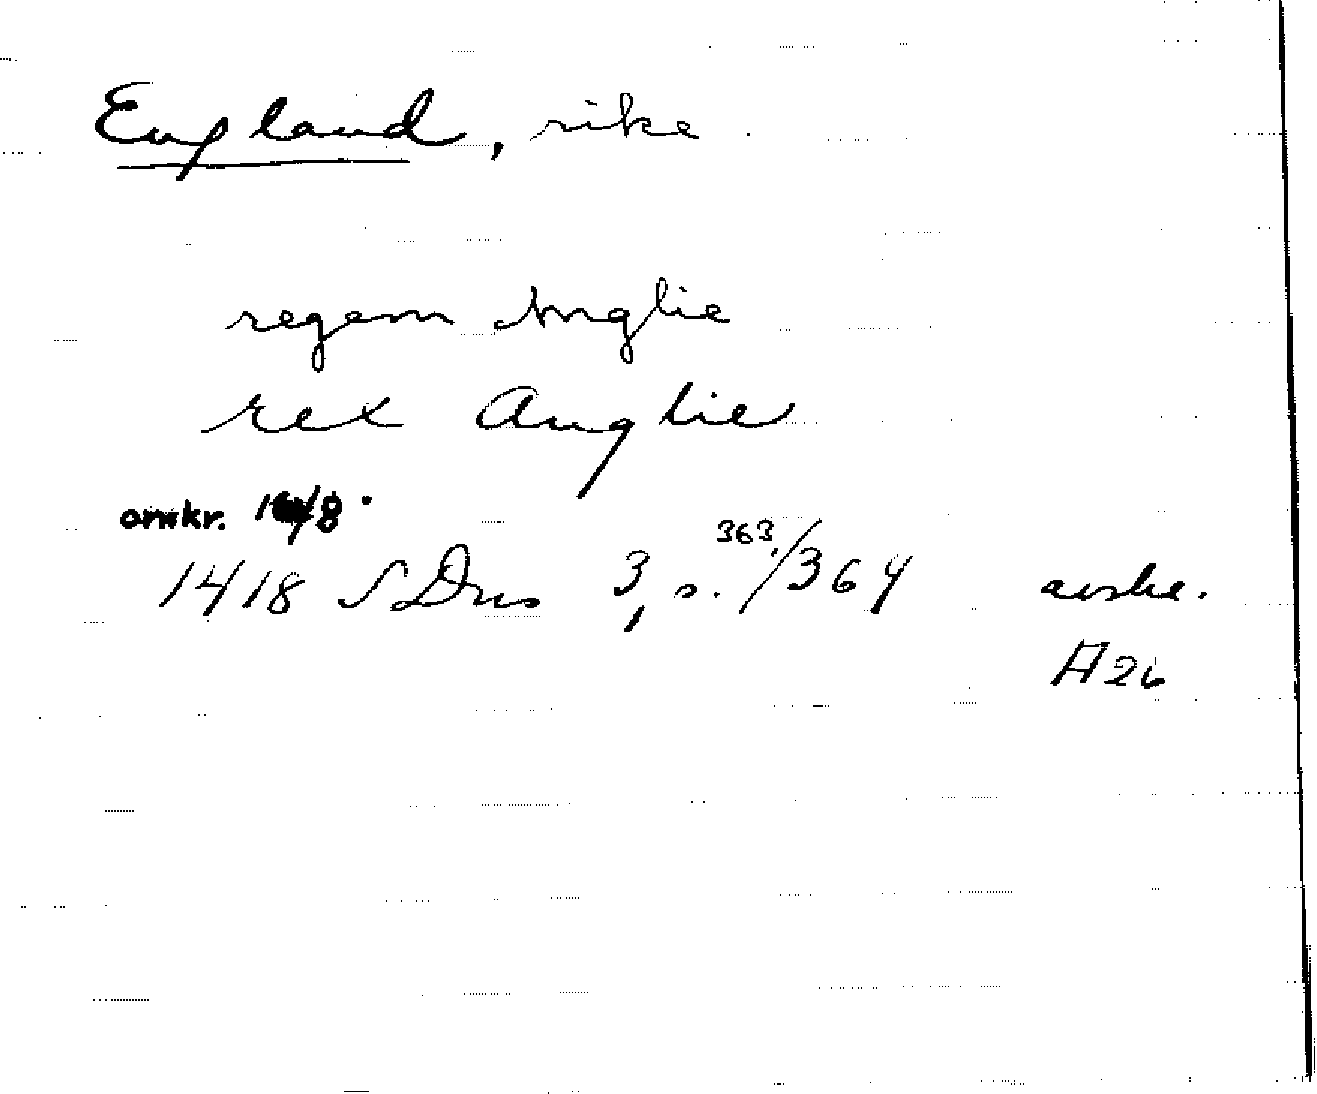 England, rike.
regem Anglie
rex Anglie
omkr.
1418 SDns 3, s. 363./364 avskr.
A 26